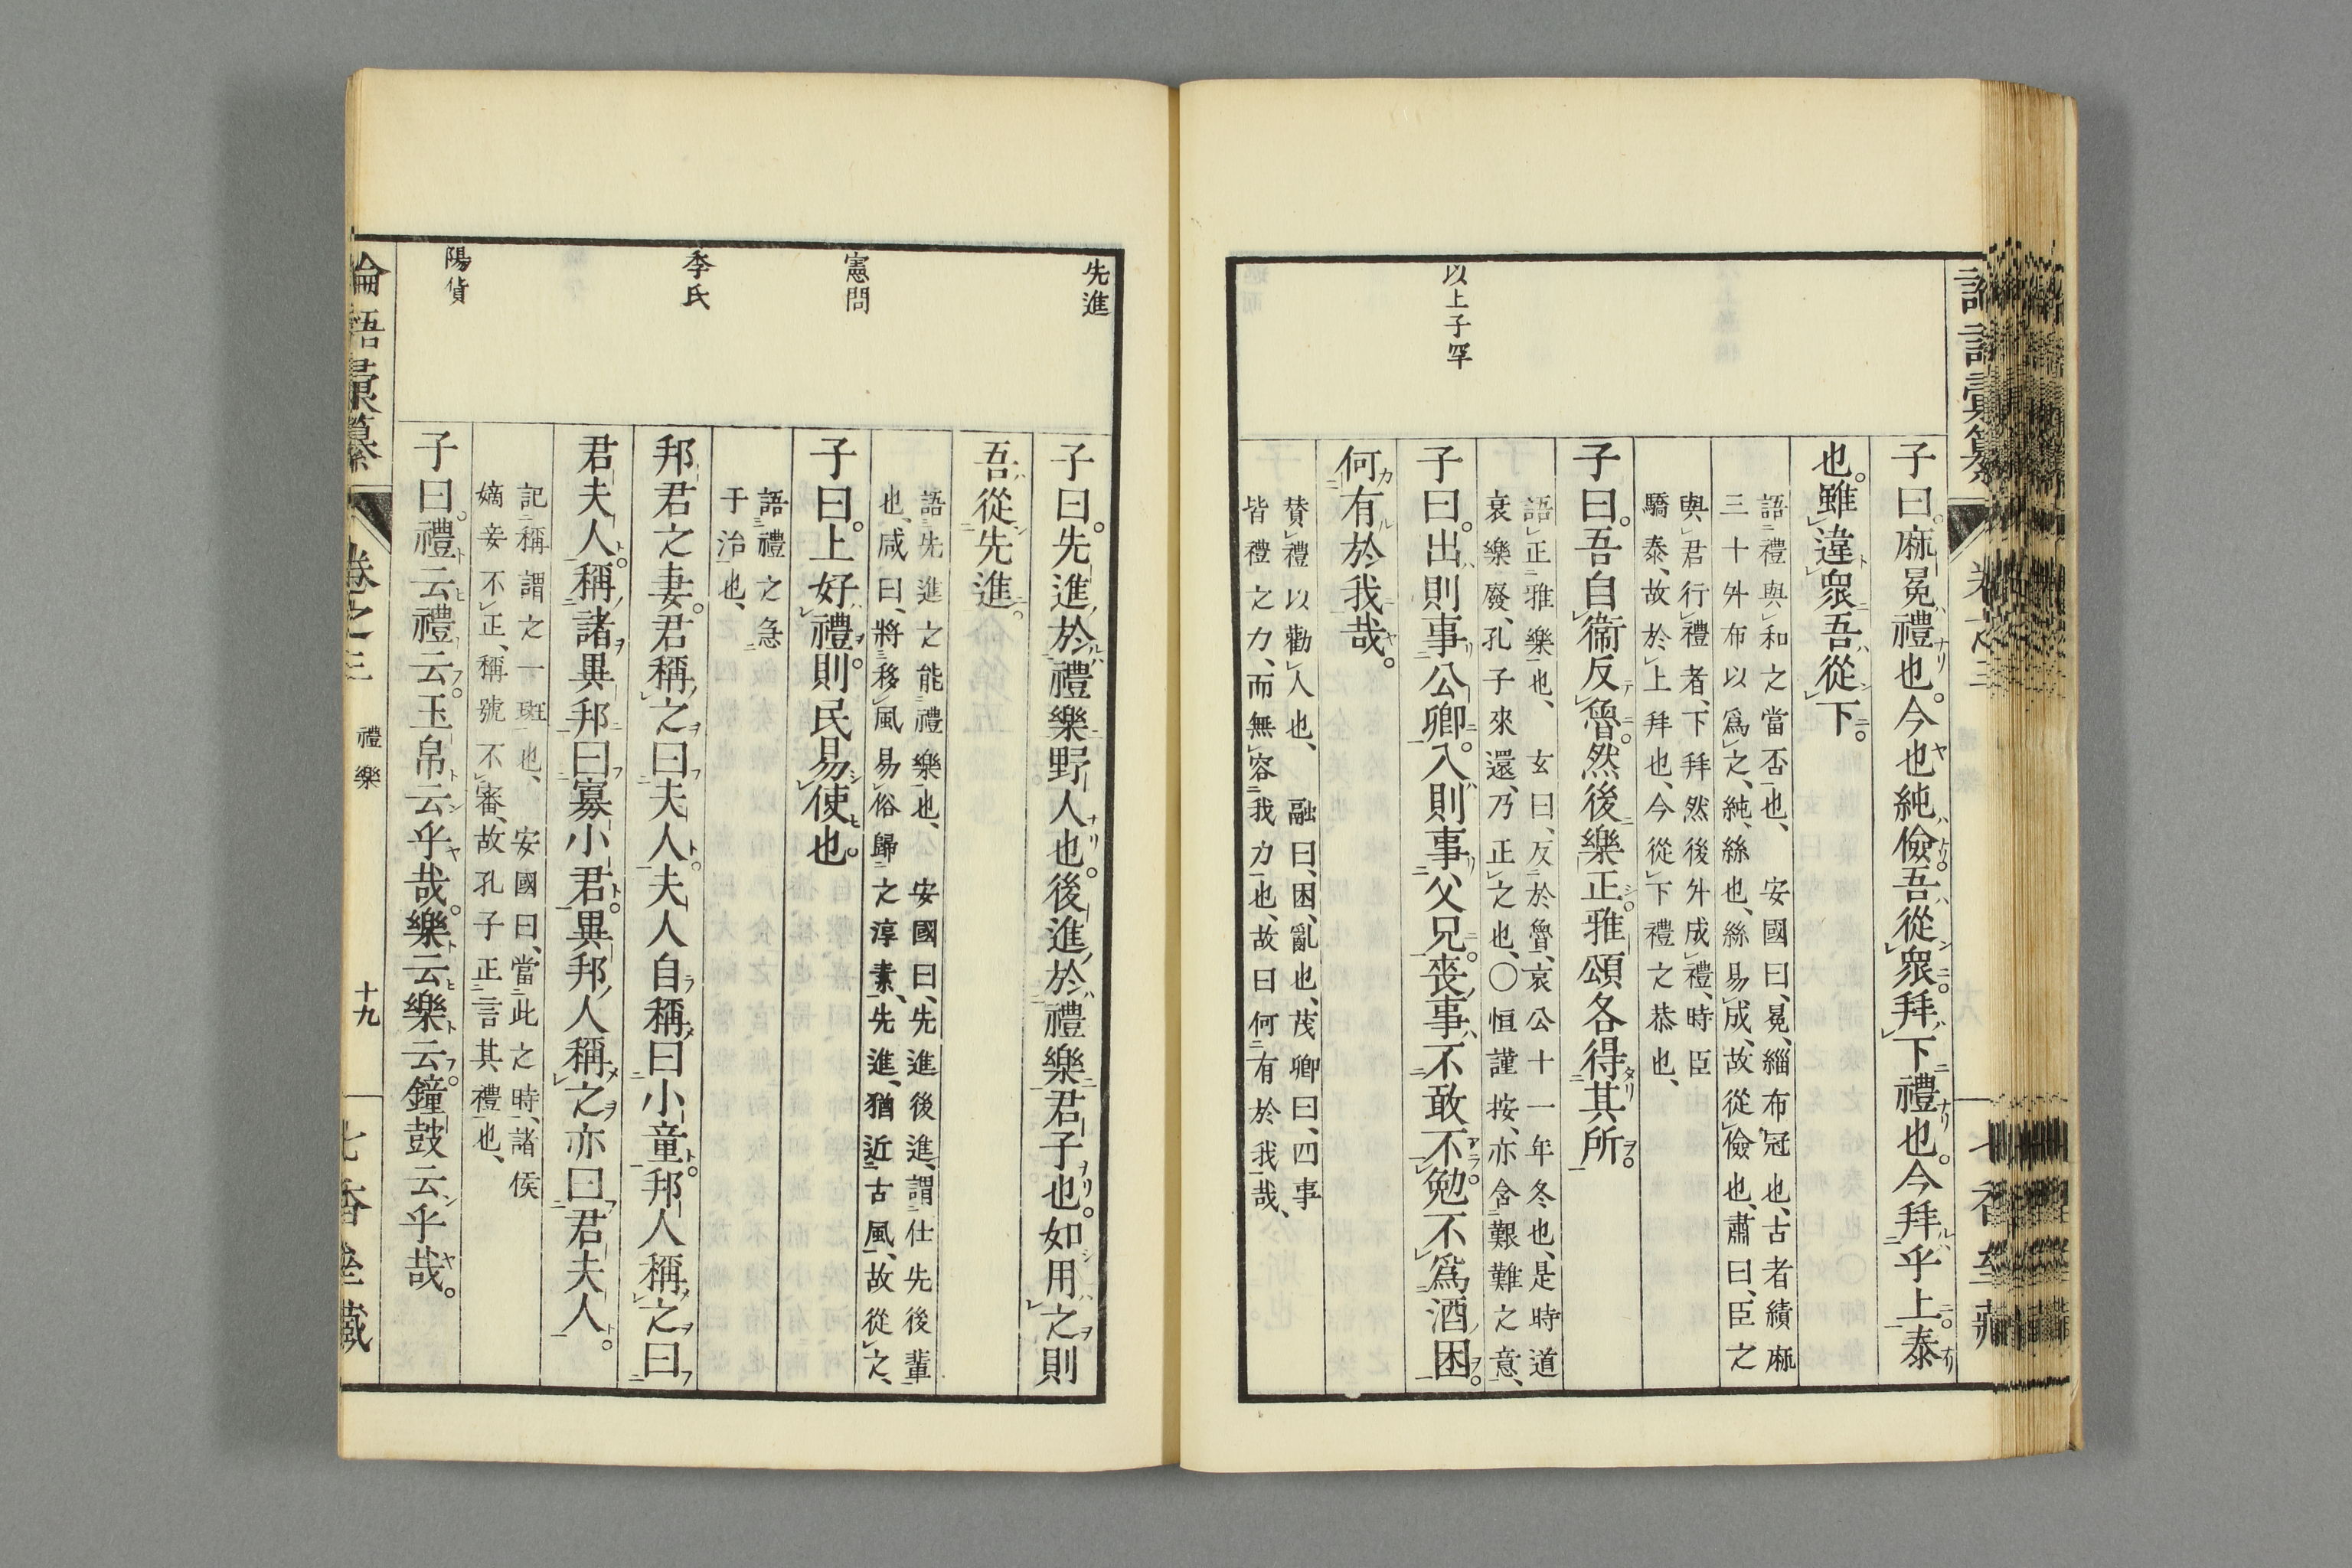 子曰。麻冕禮也。今也純儉。吾從衆。拜下禮也。今拜乎上泰
也。雖違衆吾從下。
語禮與和之當否也、安國曰、冕、緇布冠也、古者績麻
三十升布以爲之、純、絲也、絲易成、故從儉也、肅曰、臣之
與君行禮者、下拜然後升成禮、時臣
驕泰、故於上拜也、今從下禮之恭也、
子曰。吾自衞反魯。然後樂正。雅頌各得其所。
語正雅樂也、玄曰、反於魯、哀公十一年冬也、是時道
衰樂廢、孔子來還、乃正之也、〇恒謹按、亦含艱難之意、
以上子罕
子曰。出則事公卿。入則事父兄。喪事不敢不勉。不爲酒困。
何有於我哉。
賛禮以勸人也、融曰、困、亂也、茂卿曰、四事
皆禮之力、而無容我力也、故曰何有於我哉、
先進
子曰。先進於禮樂野人也。後進於禮樂君子也。如用之則
吾從先進。
語先進之能禮樂也、安國曰、先進後進、謂仕先後輩
也、咸曰、將移風易俗歸之淳素、先進、猶近古風、故從之、
憲問
子曰。上好禮。則民易使也。
語禮之急
于治也、
季氏
邦君之妻。君稱之曰夫人。夫人自稱曰小童。邦人稱之曰
君夫人。稱諸異邦曰寡小君。異邦人稱之亦曰君夫人。
記稱謂之一斑也、安國曰、當此之時、諸侯
嫡妾不正、稱號不審、故孔子正言其禮也、
陽貨
子曰。禮云禮云。玉帛云乎哉。樂云樂云。鐘鼓云乎哉。
論語彙纂 卷之三 禮樂 十九